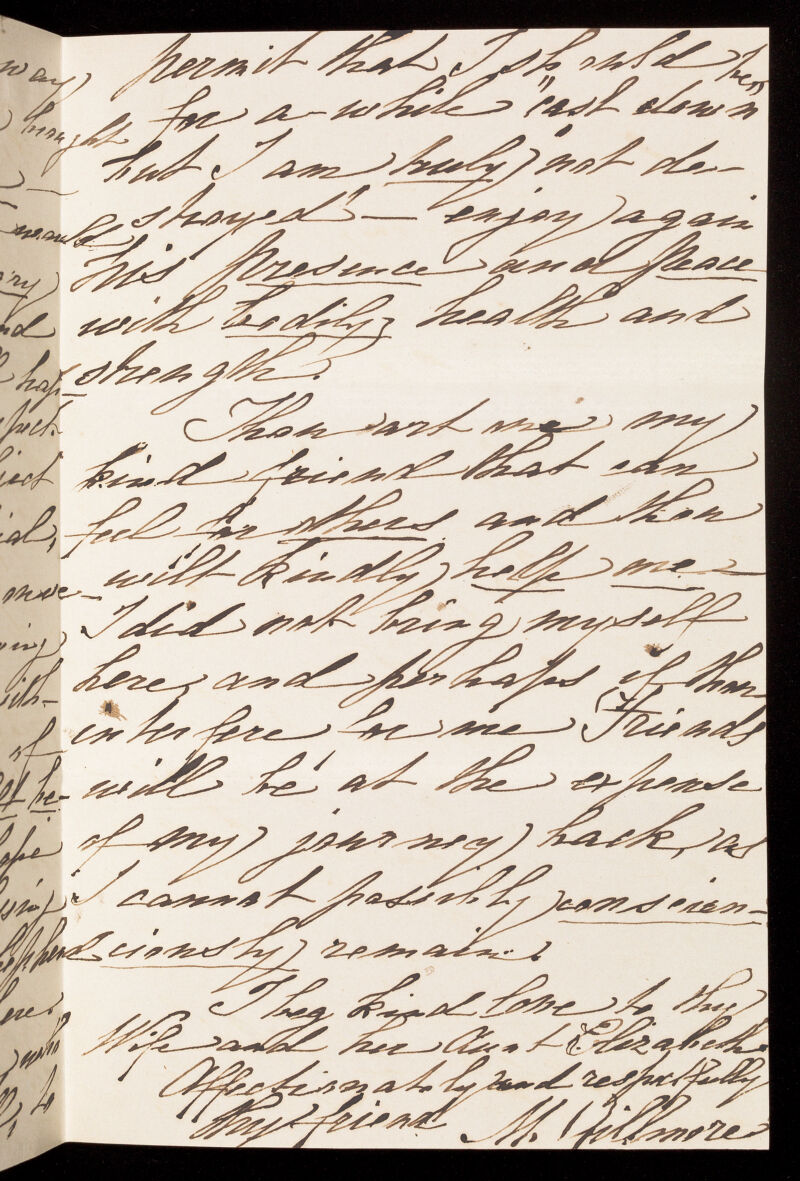 permit that I should be
for a while "cast down"
but I am truly "not de-
stroyed" — enjoy again
his presence and peace
with bodily health and
strength.
Thou art one my
kind friend that can
feel for others and thou
wilt kindly help me —
I did not bring myself
here, and perhaps if thou
interfere for me Friends
will be at the expense
of my journey back, as
I cannot possibly conscien-
ciously remain.
I beg kind love to thy
Wife and her Aunt Elizabeth
Affectionately and respectfully
thy friend M. Fillmore
way
bought
would
nd
hap-
ject
ial,
move-
ing
ith-
of
be-